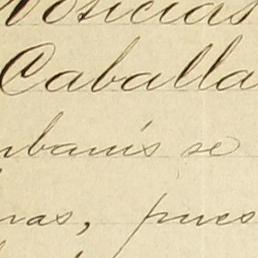 Noticias
Caballa
urbanís se
nas, pues